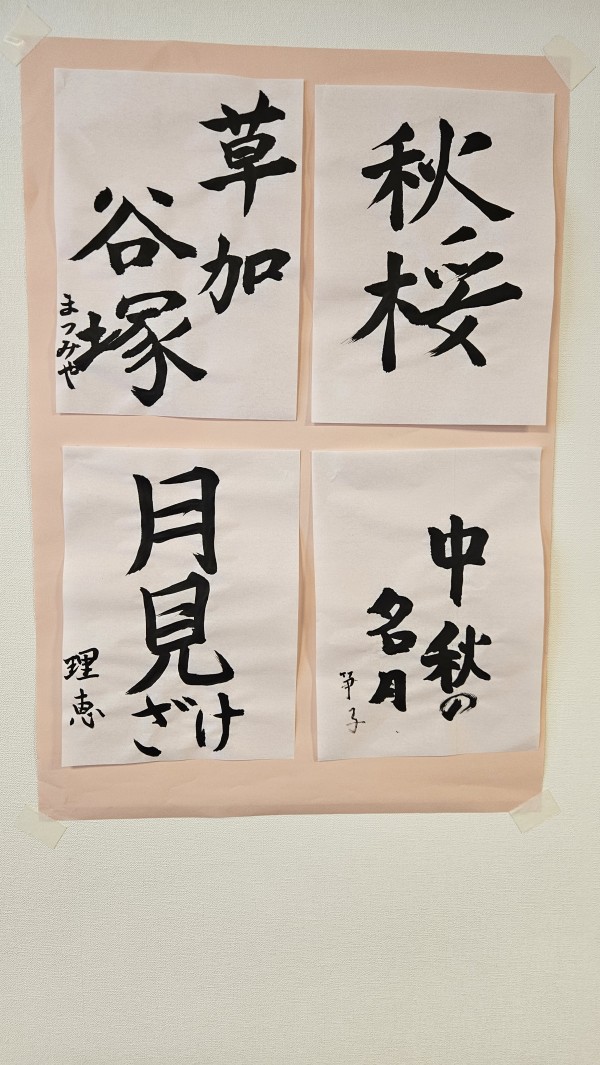 秋桜
草加
谷塚
まつみや
中秋の
名月
月見
ざけ
理恵